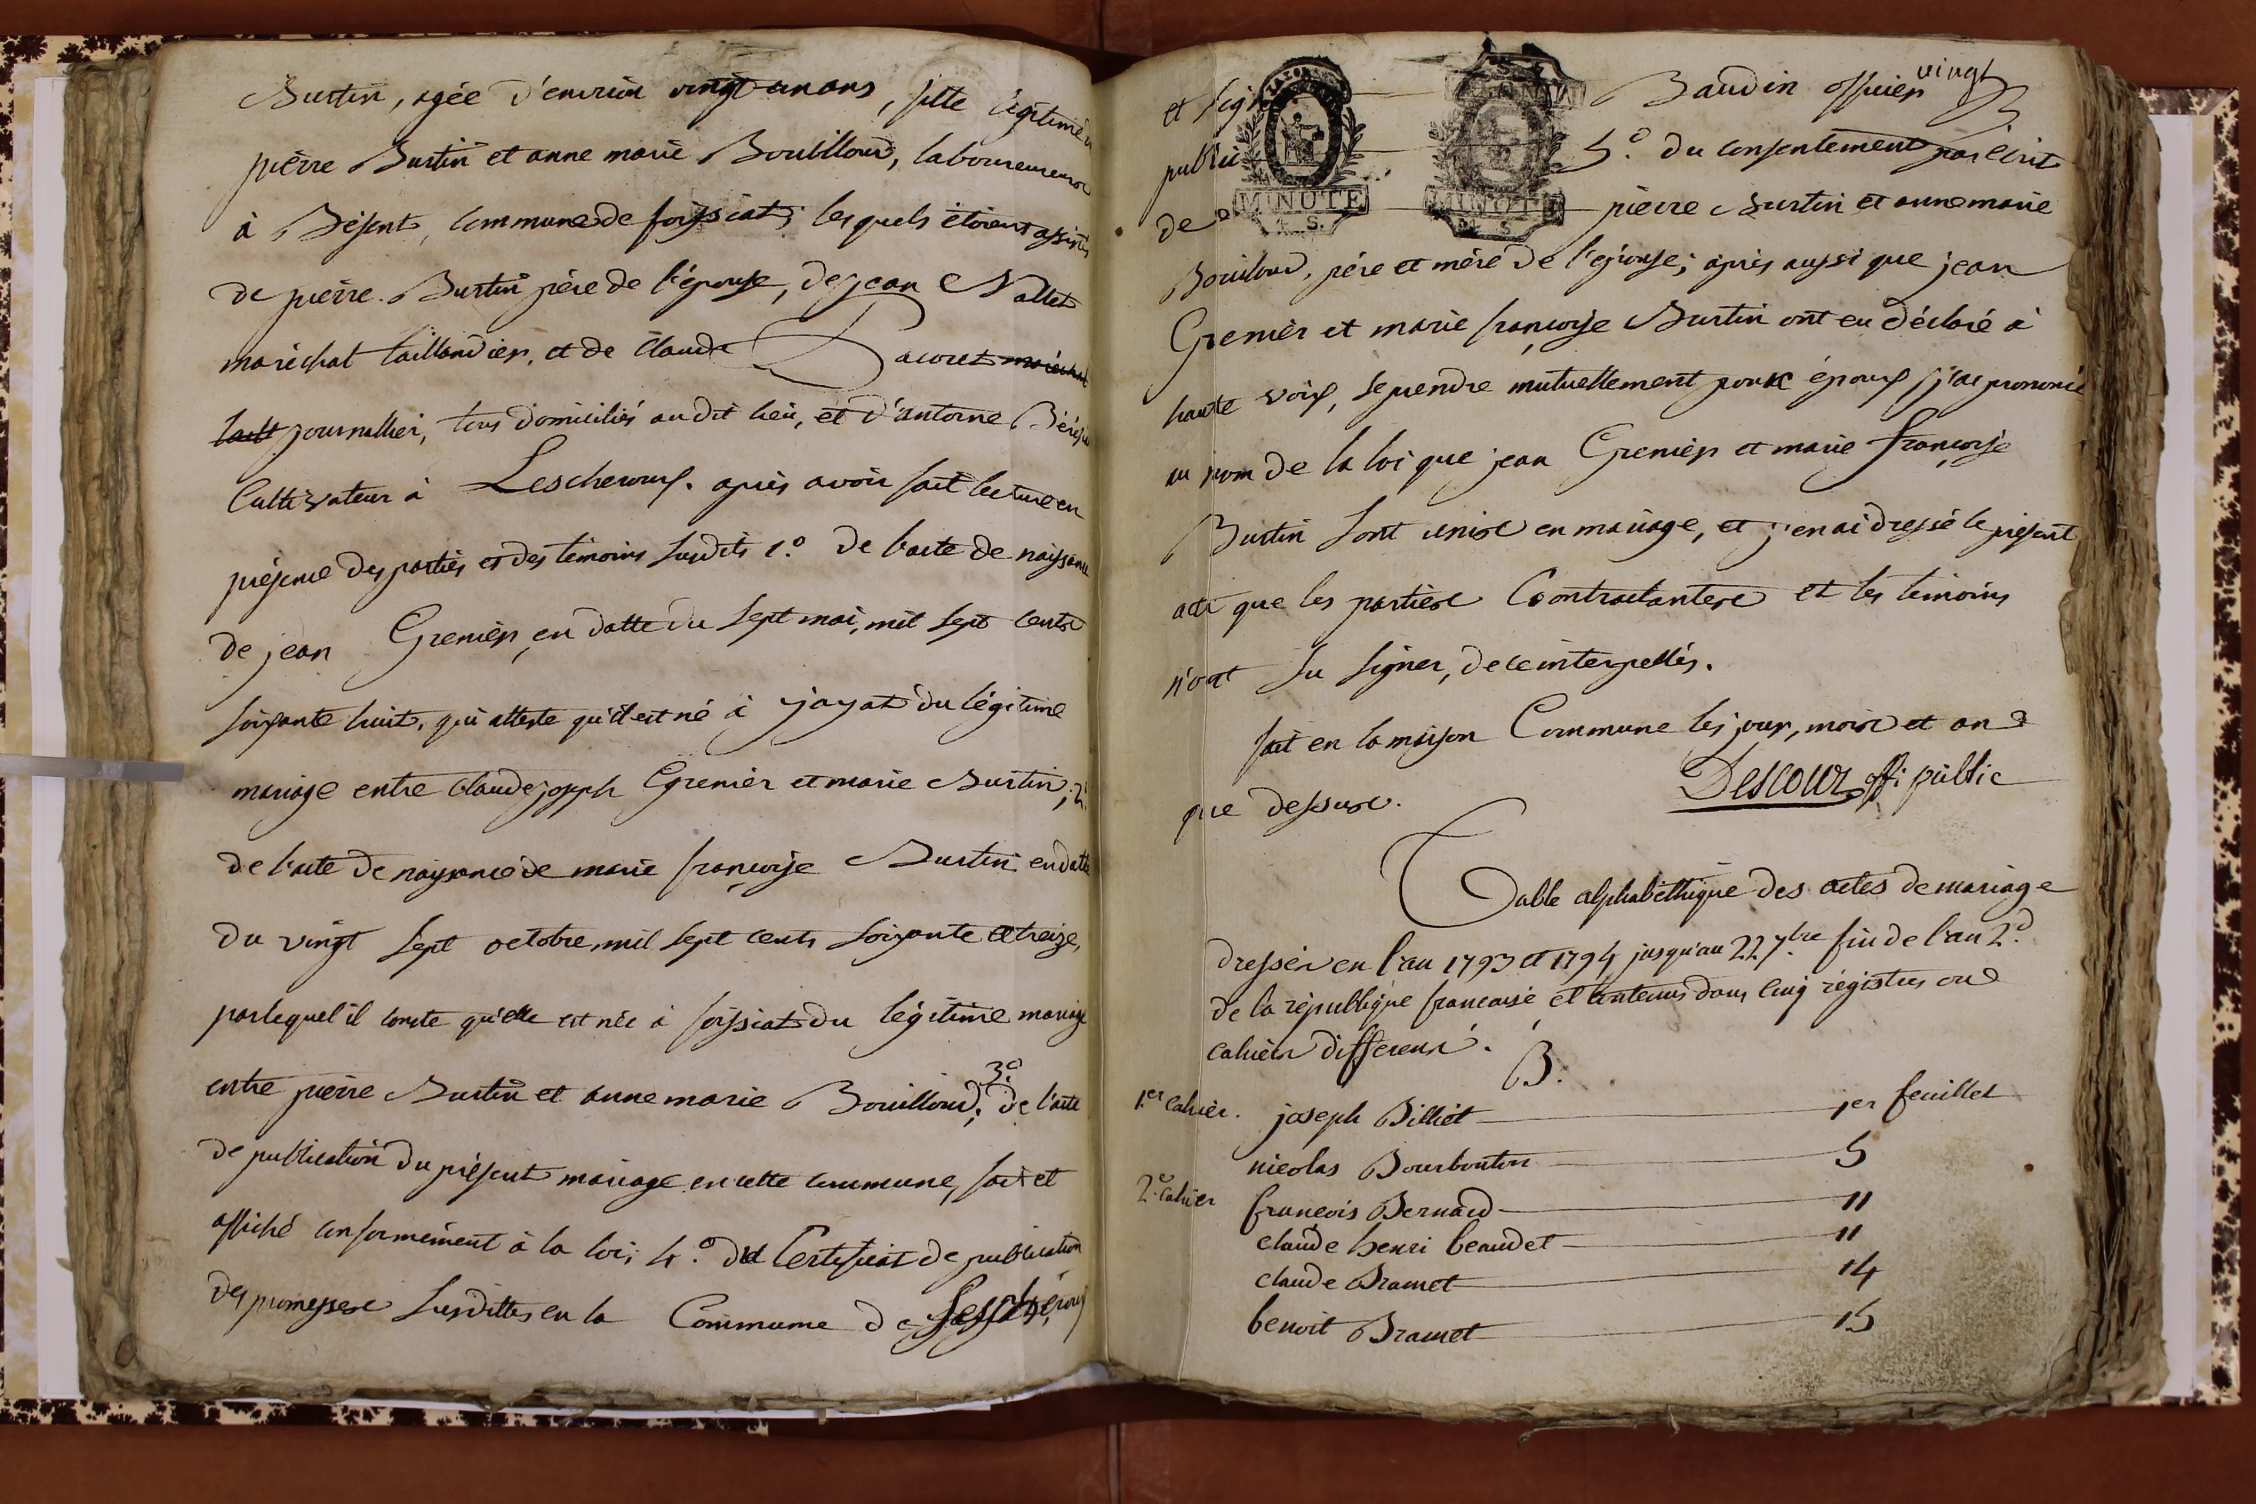 Burtin, agée d'environ vingt un ans, fille légitime de
pièrre Burtin et anne marie Bouilloud, laboureurs
à Béfent, commune de foissiat; lesquels étoient assistés
de pièrre Burtin père de l'épouse, de jean Nallet
maréchal taillandier, et de Claude Sacoret maréchal
taill journallier, tous domiciliés au dit lieu, et d'antoine
Cultivateur à Lescheroux. après avoir fait lecture en
présence des parties et des témoins susdits 1.° de l'acte de naissance
de jean Grenièr, en datte du sept mai, mil sept cents
soixante huit, qui atteste qu'il est né à jayat du légitime
mariage entre Claude joseph Grenièr et marie Burtin; 2°
de l'acte de naissance de marie françoise Burtin en datte
du vingt sept octobre, mil sept cents soixante et treize,
par lequel il conste qu'elle est née à foissiat du légitime mariage
entre pièrre Burtin et anne marie Bouilloud; 3.° de l'acte
de publication du présent mariage en cette commune, fait et
affiché conformément à la loi; 4.° du Certificat de publication
des promesses susdittes en la Commune de Lescheroux
vingt
et signé Baudin officier
public 5.° du consentement par écrit
MINUTE
MINUTE
de pièrre Burtin et anne marie
Bouiloud, père et mère de l'épouse; après aussi que jean
Grenièr et marie françoise Burtin ont eu déclaré à
haute voix, se prendre mutuellement pour époux j'ai prononcé
au nom de la loi que jean Grenièr et marie françoise
Burtin sont unis en mariage, et j'en ai dressé le présent
acte que les parties Contractantes et les témoins
n'ont su signer, de ce interpellés.
fait en la maison Commune les jour, mois et an
que dessus. Descour offi public
Table alphabéthique des actes de mariage
dressés en l'an 1793 et 1794 jusqu'au 22 7.bre fin de l'an 2.d
de la république francaise et contenus dans cinq régistres ou
cahiers differens.
B.
1.er cahier. joseph Billiet 1er feuillet
nicolas Bourbonton 5
2.e cahier françois Bernard 11
claude henri beaudet 11
claude Bramet 14
benoit Bramet 15